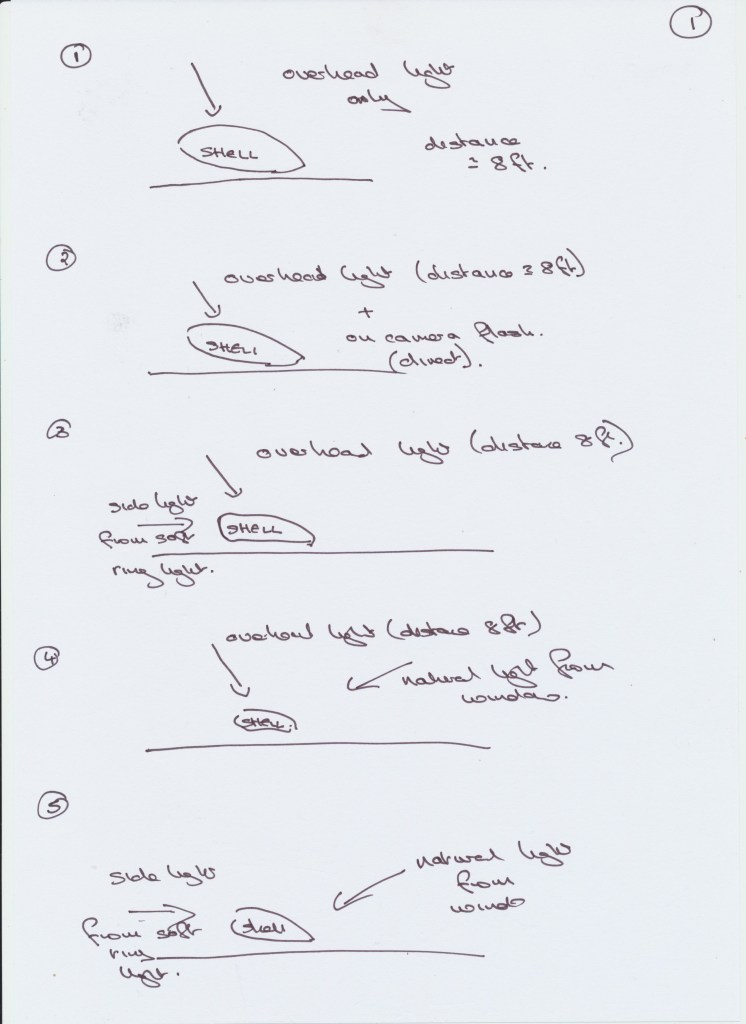 1
1
overhead light
only
SHELL
distance
≃ 8ft.
2
overhead light (distance ≃ 8ft)
+
SHELL
on camera flash.
(direct).
3
overhead light (distance 8ft.)
side light
SHELL
from soft
ring light.
overhead light (distance 8ft)
4
natural light from
window.
SHELL
5
natural light
side light
from
window
from soft
shell
ring
light.